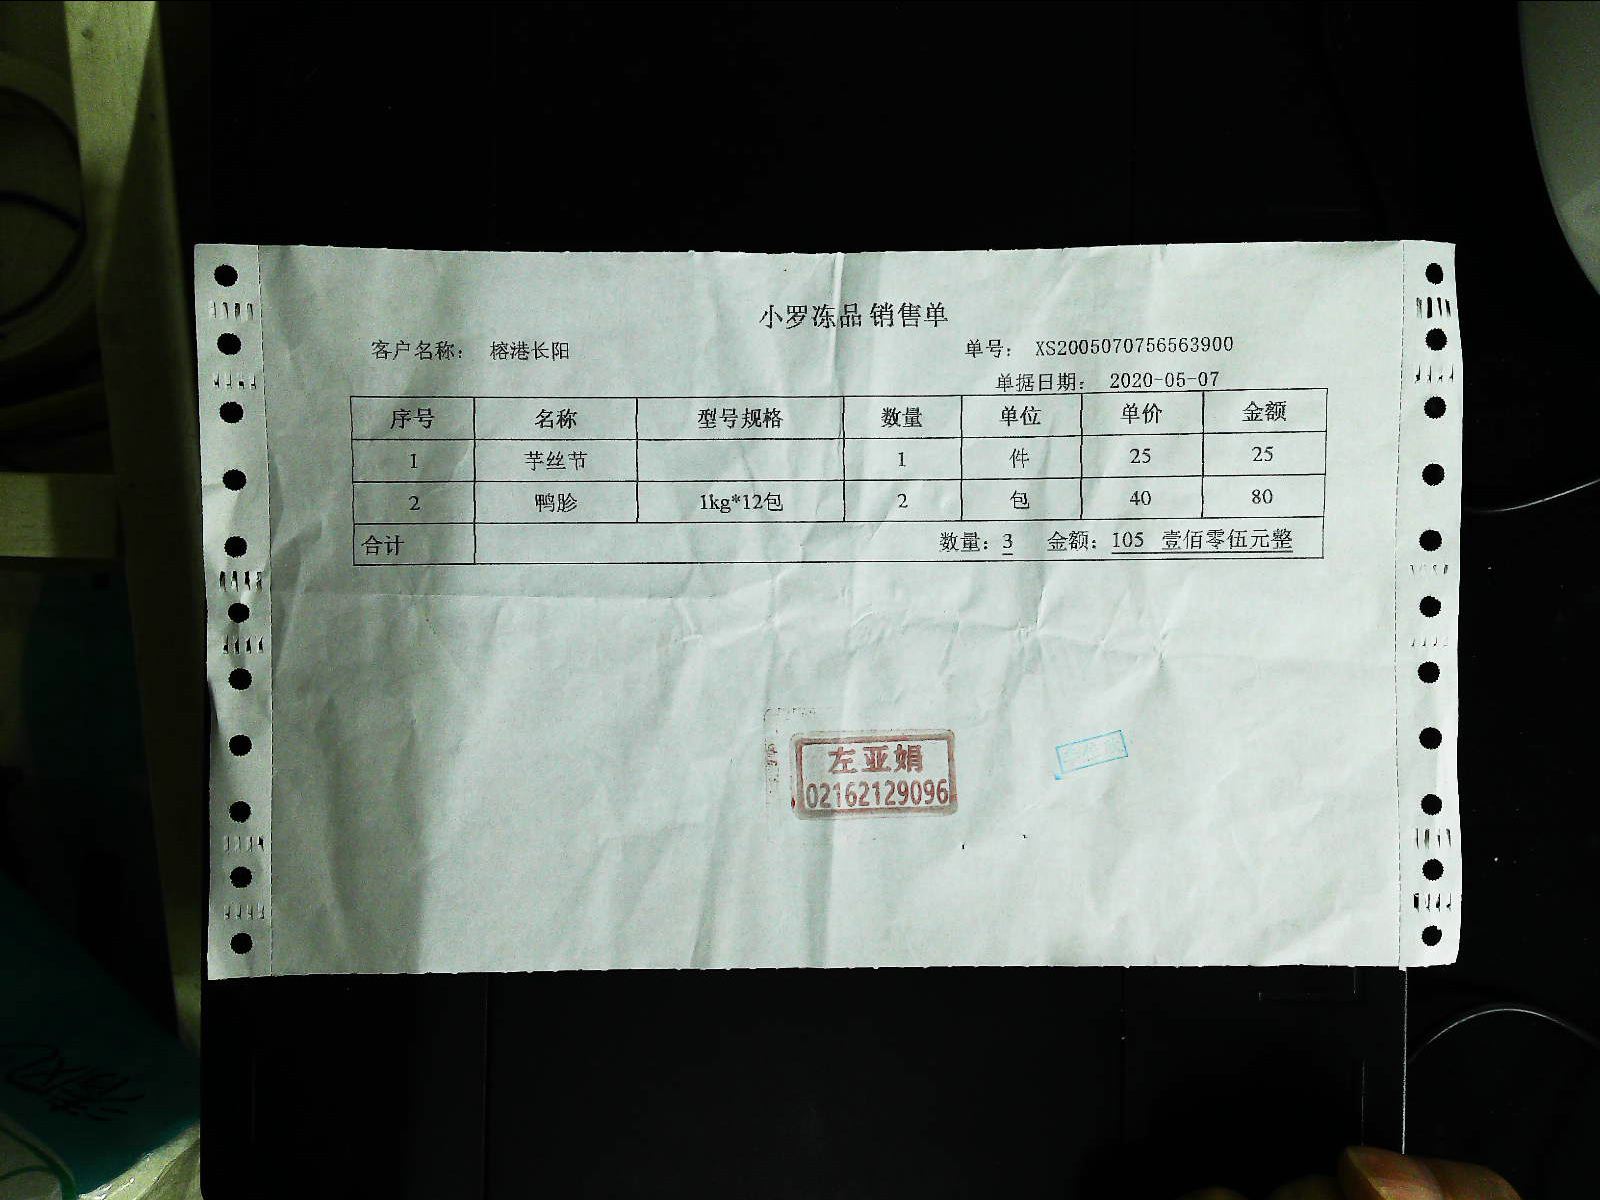 小罗冻品 销售单
客户名称： 榕港长阳 单号： XS2005070756563900
单据日期： 2020-05-07
序号 名称 型号规格 数量 单位 单价 金额
1 芋丝节 1 件 25 25
2 鸭胗 1kg*12包 2 包 40 80
合计 数量：3 金额：105 壹佰零伍元整
左亚娟
02162129096